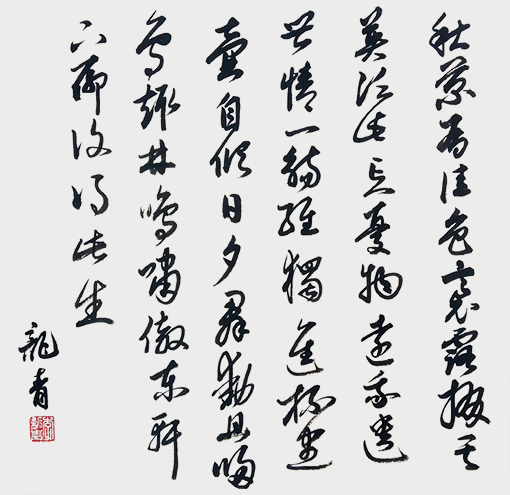 秋菊有佳色裛露掇其
英泛此忘憂物遠我遺
世情一觴雖獨進杯盡
壺自傾日夕群動且歸
鳥趣林鳴嘯傲東軒
下聊復得此生
龍青